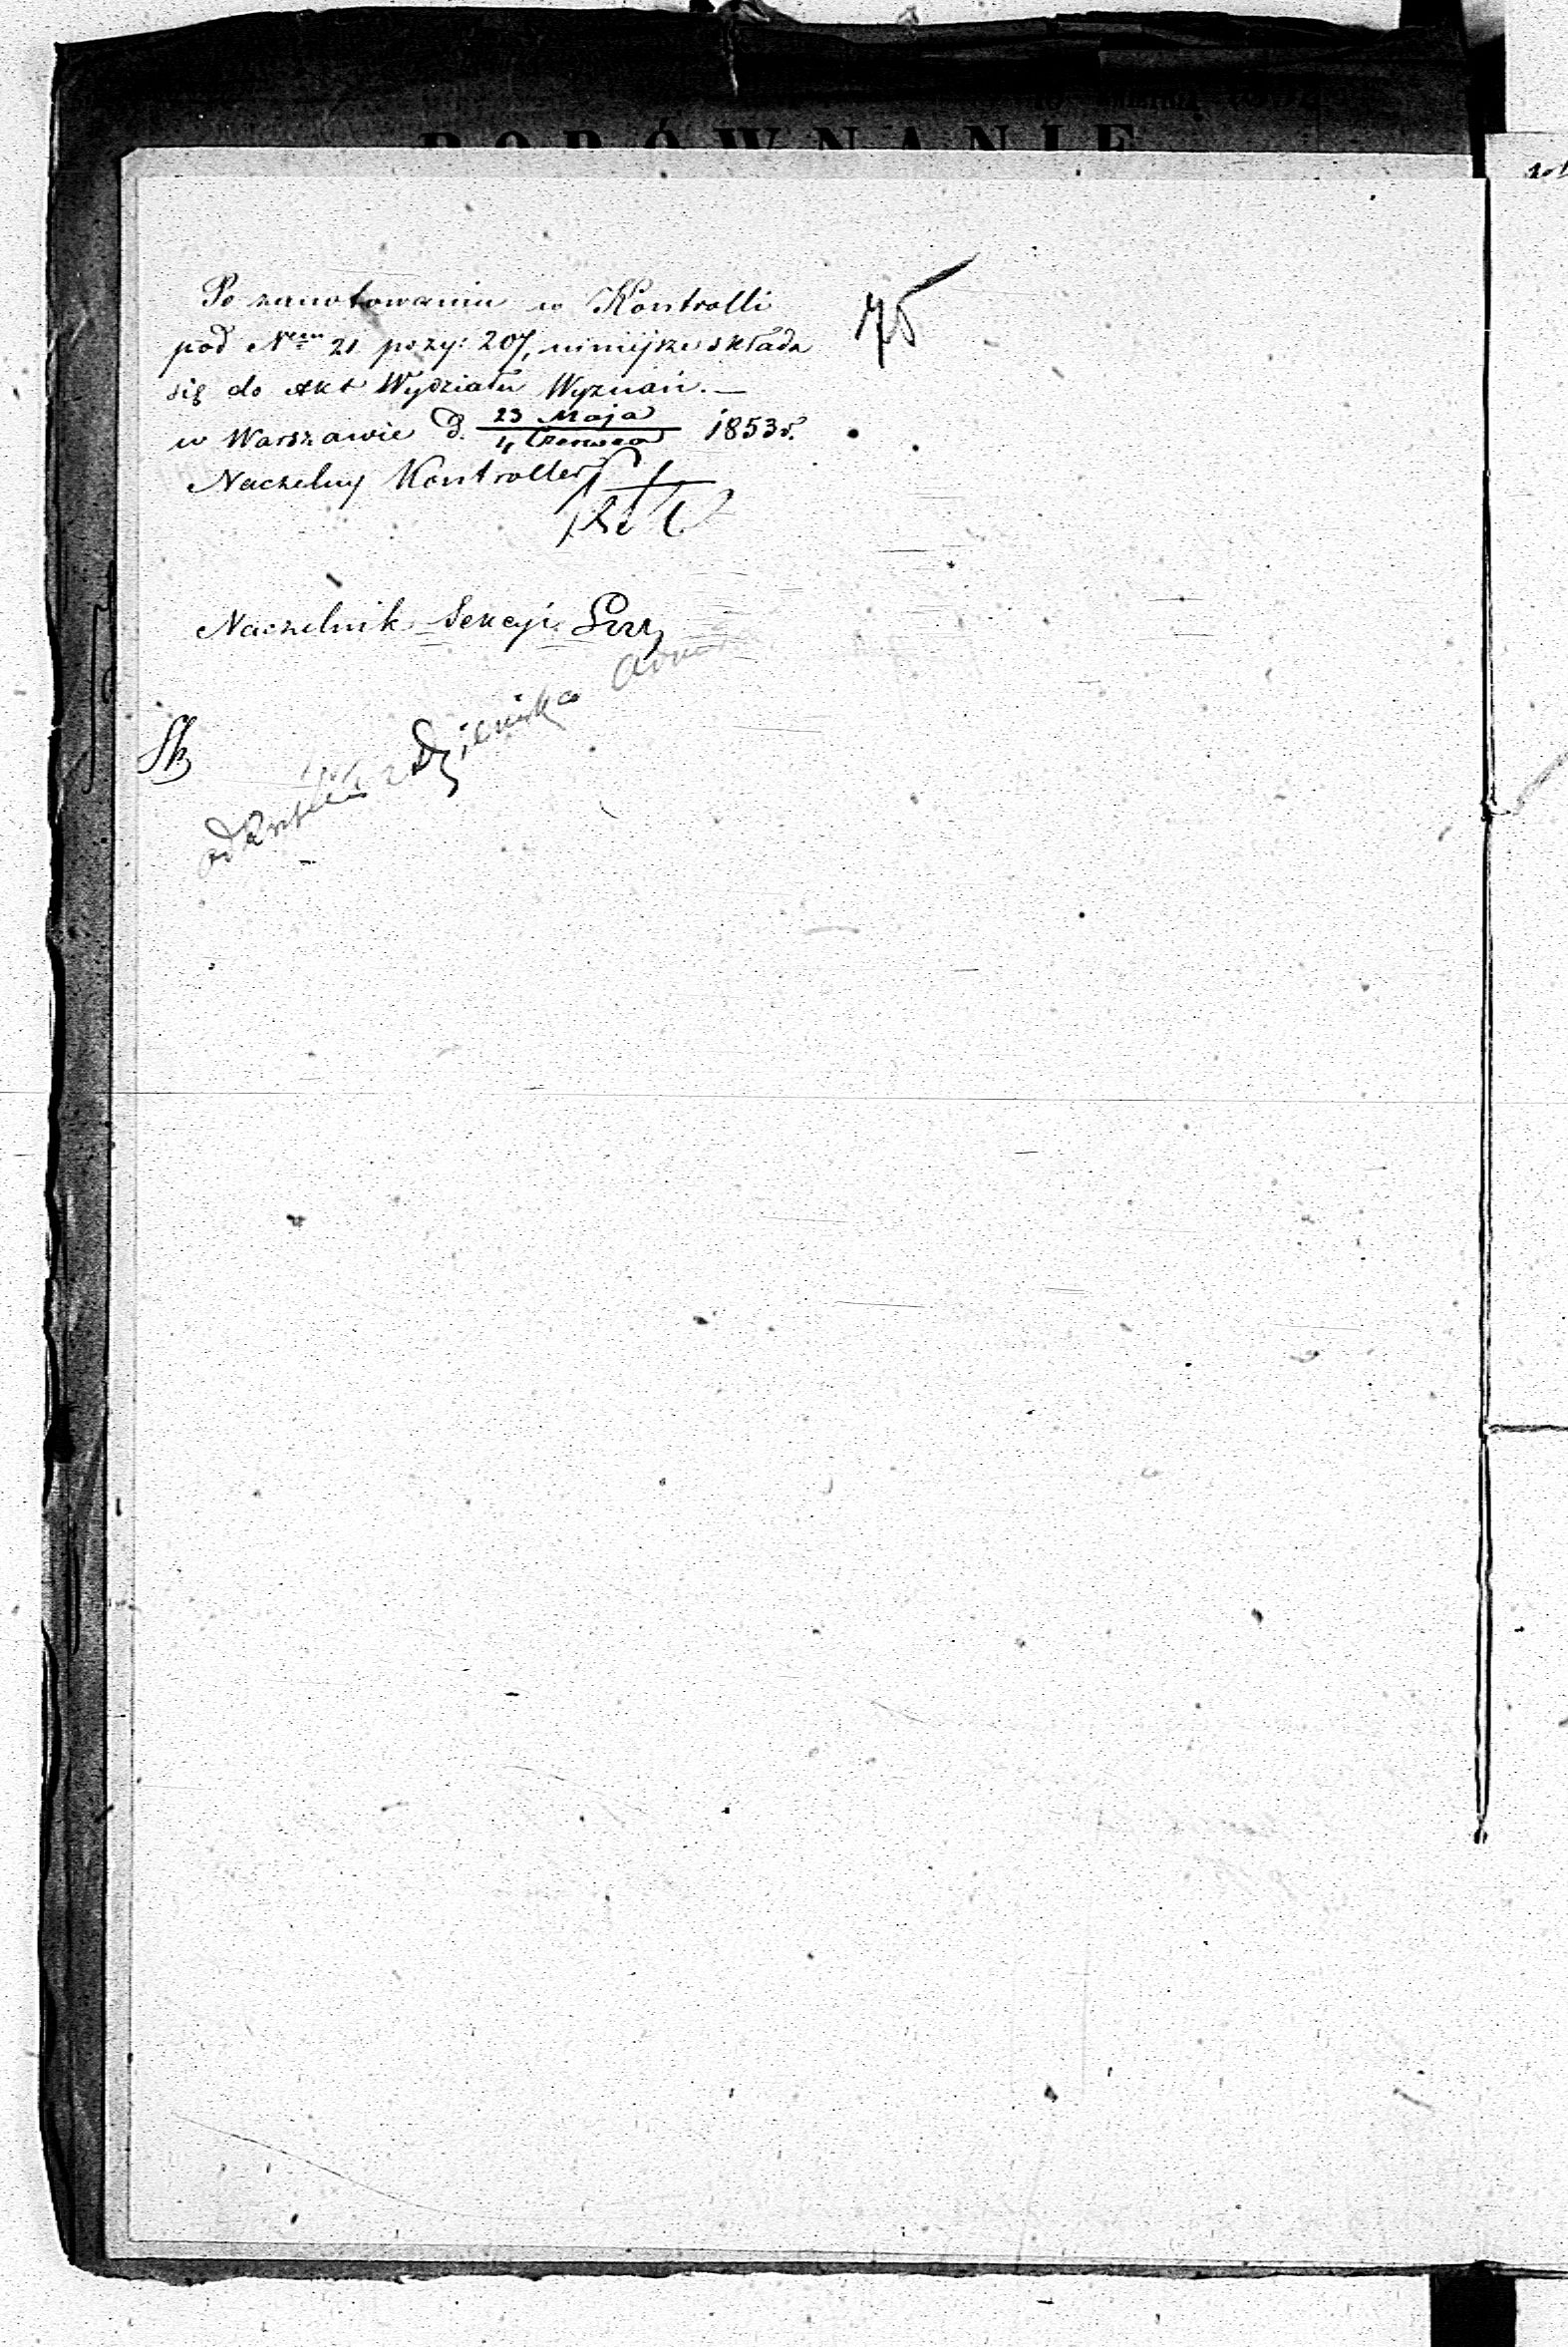 PORÓWNANIE
75
Po zanotowaniu w Kontrolli
pod Nrem 21 pozy: 207, niniejsze składa
się do Akt Wydziału Wyznań. —
w Warszawie d. 23 Maja / 4 Czerwca 1853 r.
Naczelny Kontroller
Naczelnik Sekcyi
Sk